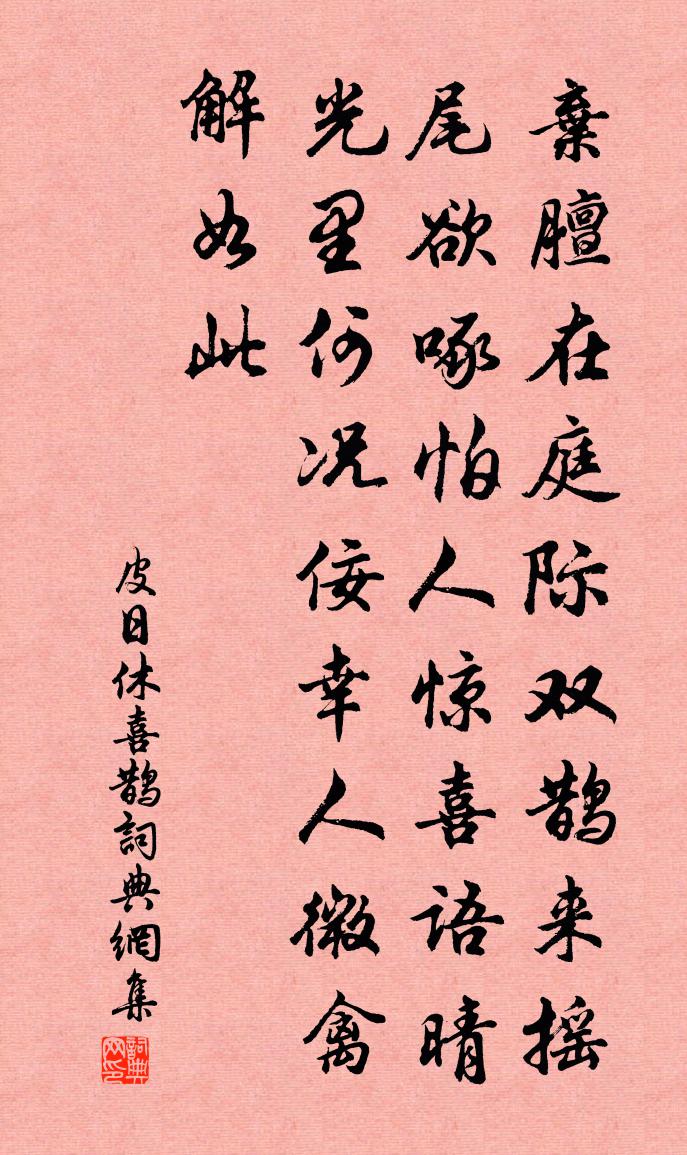 棄膻在庭际双鹊来摇
尾欲啄怕人惊喜语晴
光里何况佞幸人微禽
解如此
皮日休喜鹊詞典網集
詞典网印